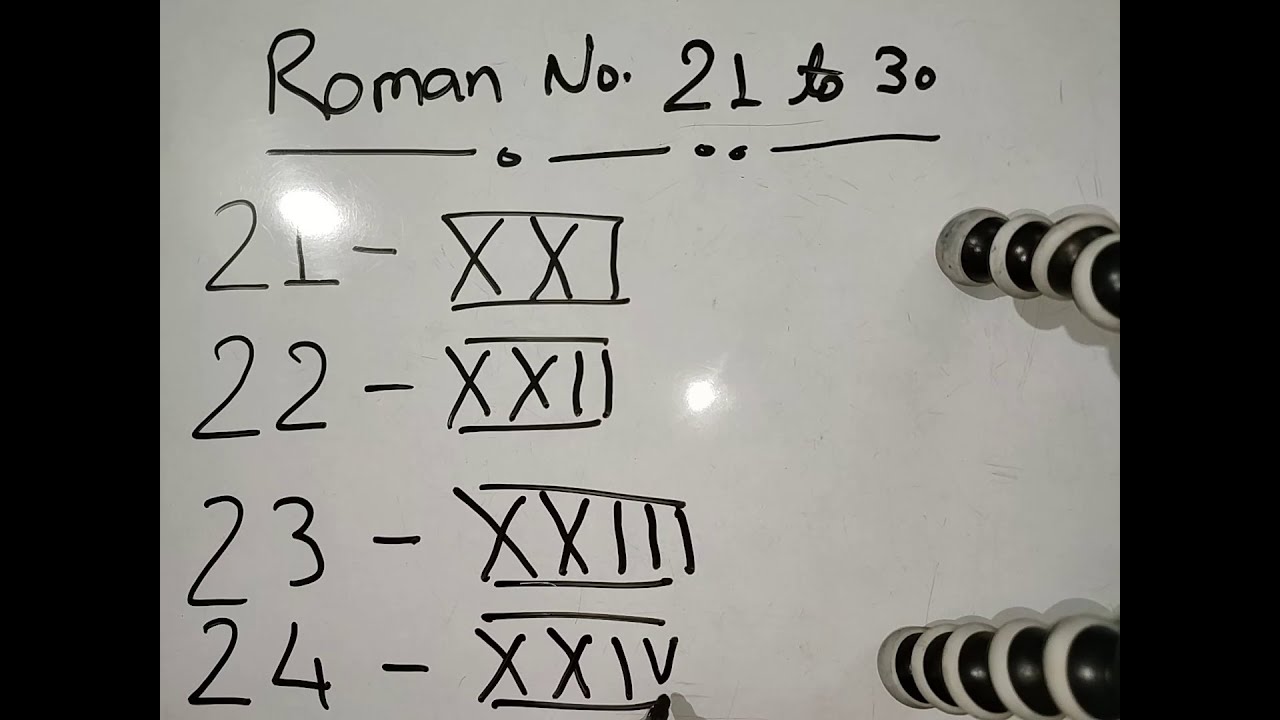 Roman No. 21 to 30
21 - XXI
22 - XXII
23 - XXIII
24 - XXIV